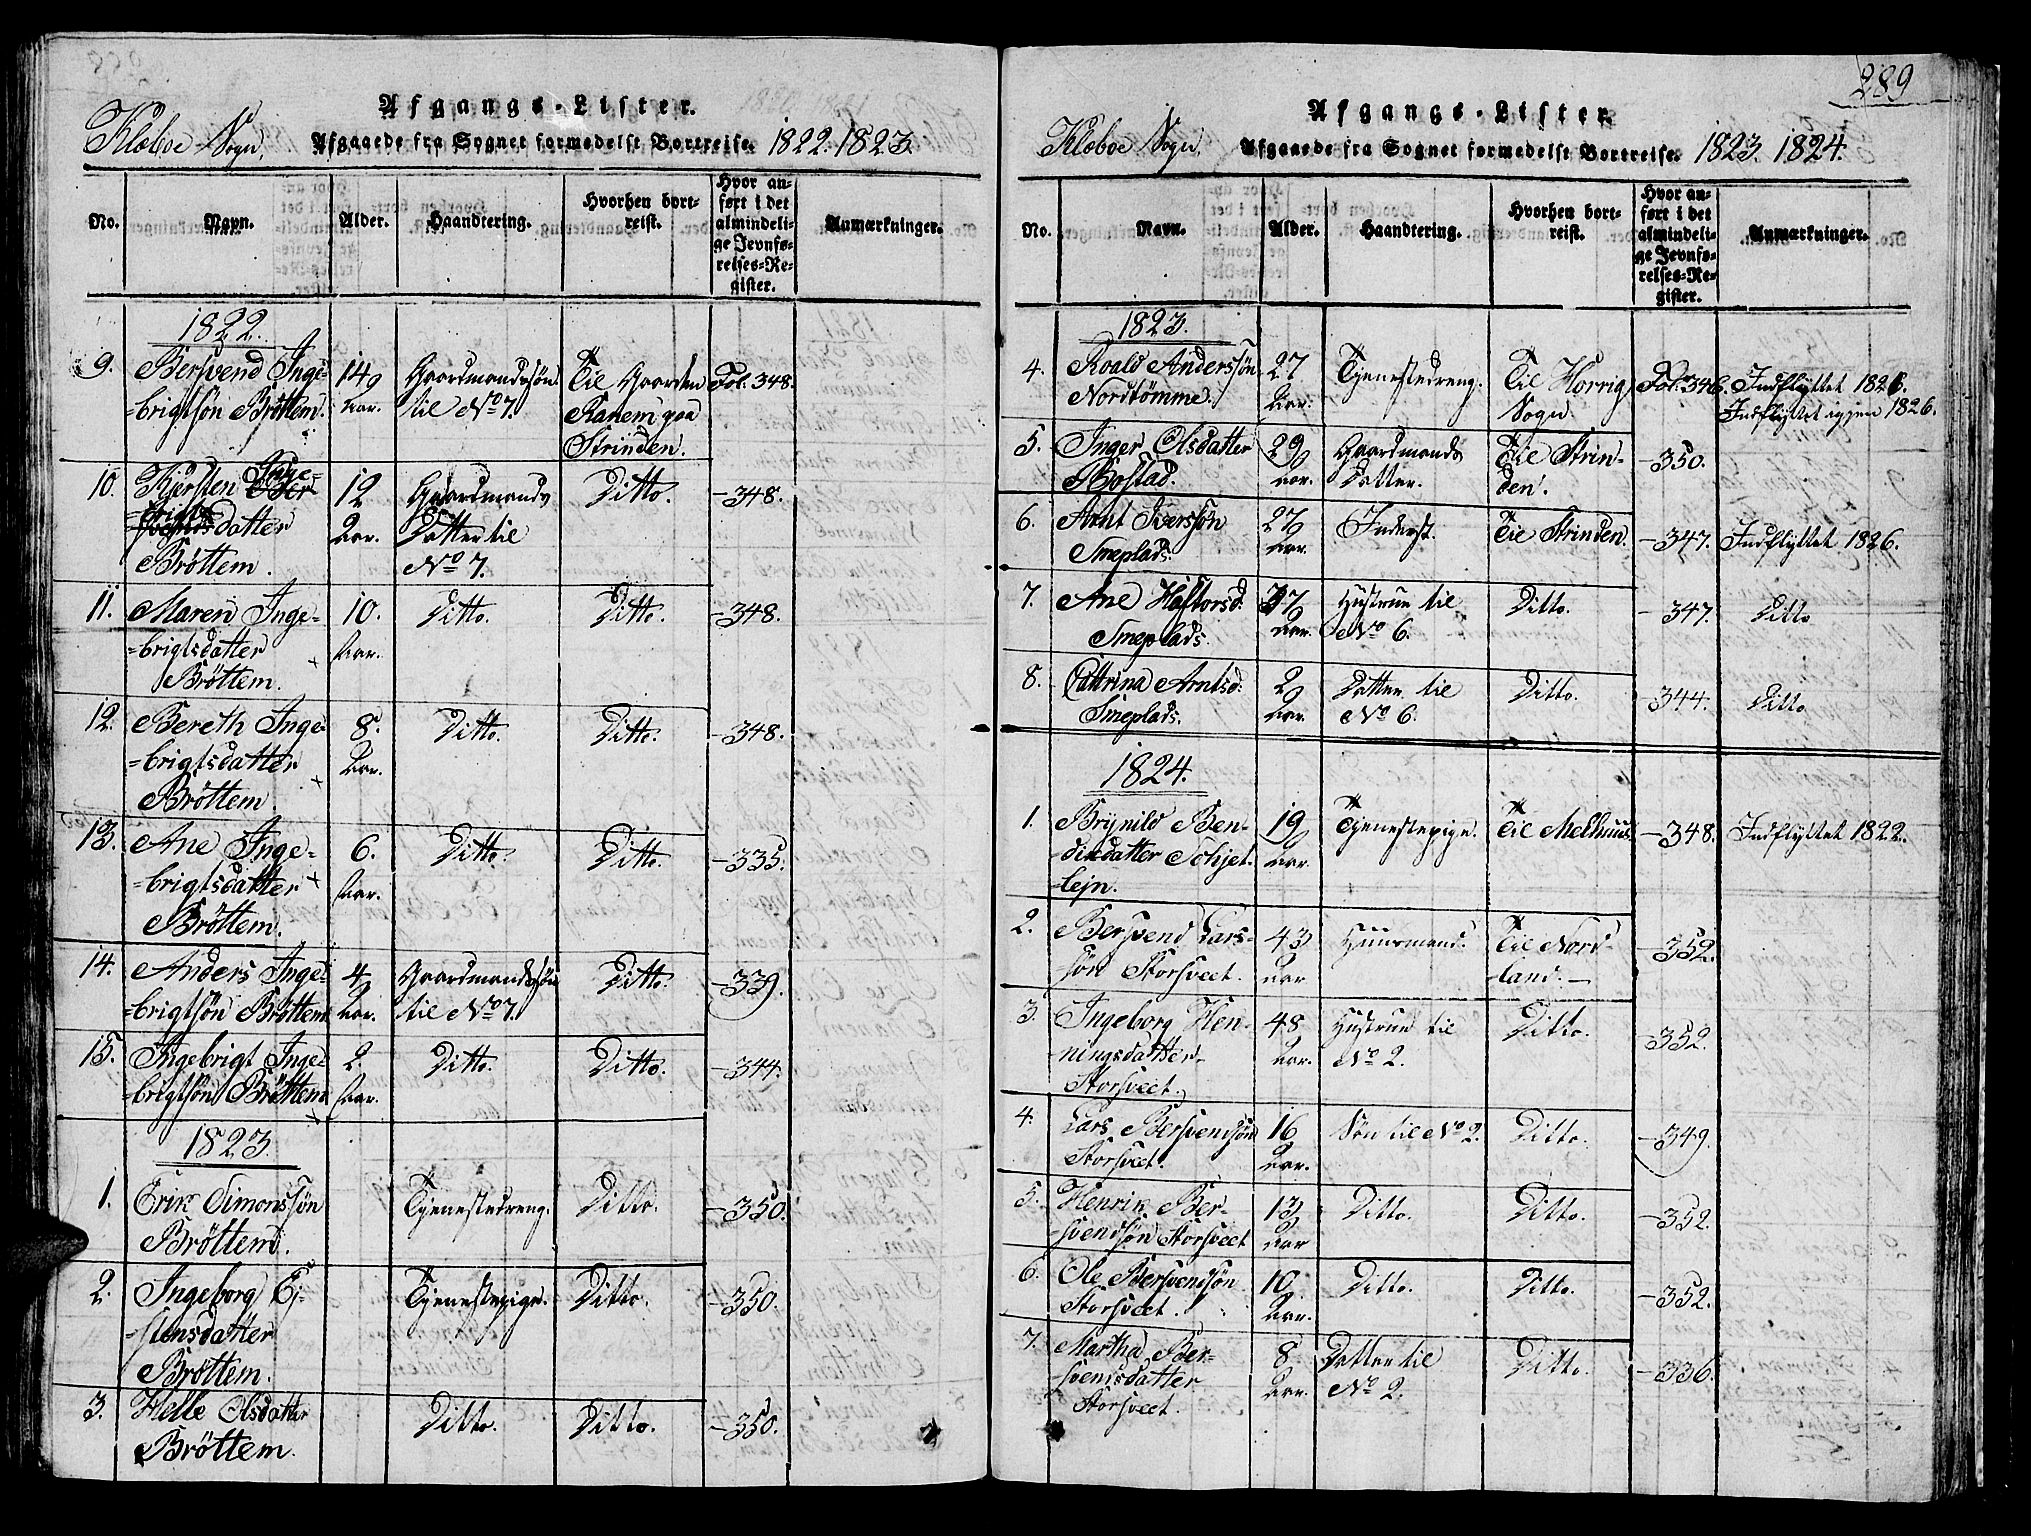 Klæboe Sogn.
Afgangs-Lister.
Afgaaede fra Sognet formedelst Bortreise. 1822. 1823.
No. Navn. Alder. Haandtering. Hvorhen bortreist. Hvor anført i det almindelige Jevnførelses-Register. Anmærkninger.
1822.
9. Bersvend Inge- 14 Gaardmandssøn Til Gaarden Fol. 348.
=brigtsøn Brøttem. Aar. til No 7. Ranem paa
Strinden.
10. Kjersten Inge- 12 Gaardmands Ditto. -348.
=brigtsdatter Aar. Datter til
Brøttem. No 7.
11. Maren Inge- 10. Ditto. Ditto. -348.
=brigtsdatter Aar.
Brøttem.
12. Bereth Inge- 8. Ditto. Ditto. -348.
=brigtsdatter Aar.
Brøttem.
13. Ane Inge- 6. Ditto. Ditto. -335.
=brigtsdatter Aar.
Brøttem.
14. Anders Inge- 4 Gaardmandssøn Ditto. -339.
=brigtsøn Brøttem Aar. til No 7.
15. Ingebrigt Inge- 2. Ditto. Ditto. -344.
=brigtsøn Brøttem Aar.
1823.
1. Erik Simonssøn Tjenestedreng. Ditto. -350.
Brøttem.
2. Ingeborg Ej- Tjenestepige. Ditto. -350.
=stensdatter
Brøttem.
3. Helle Olsdatter Ditto. Ditto. -350.
Brøttem.
289
Klæboe Sogn.
Afgangs-Lister.
Afgaaede fra Sognet formedelst Bortreise. 1823. 1824.
No. Navn. Alder. Haandtering. Hvorhen bortreist. Hvor anført i det almindelige Jevnførelses-Register. Anmærkninger.
1823.
4. Roald Anderssøn 27 Tjenestedreng. Til Horrig Fol. 346. Indflyttet 1826.
Nordtømme. Aar. Sogn Indflyttet igjen 1826.
5. Inger Olsdatter 29 Gaardmands Til Strin- -350.
Bostad. Aar. Datter. den.
6. Arnt Iverssøn 27 Inderst. Til Strinden. -347. Indflyttet 1826.
Smeplads. Aar.
7. Ane Haftorsd. 37 Hustrue til Ditto. -347. Ditto
Smeplads. Aar. No 6.
8. Cattrina Arntsd. 2 Datter til Ditto. -344. Ditto
Smeplads. Aar. No 6.
1824.
1. Brynild Ben- 19 Tjenestepige. Til Melhuus. -348. Indflyttet 1822.
=dixdatter Sohjel- Aar.
=lejn.
2. Bersvend Lars- 43 Huusmand. Til Nord- -352.
søn Storsveet. Aar land.
3. Ingeborg Hen- 48 Hustrue til Ditto. -352.
=ningsdatter Aar. No 2.
Storsveet.
4. Lars Bersvendsøn 16 Søn til No 2. Ditto. -349.
Storsveet. Aar.
5. Henrik Ber- 13 Ditto. Ditto. -352.
svendsøn Storsveet Aar
6. Ole Bersvendsøn 10. Ditto. Ditto. -352.
Storsveet. Aar.
7. Martha Ber- 8 Datter til Ditto. -336.
svensdatter Aar. No 2.
Storsveet.